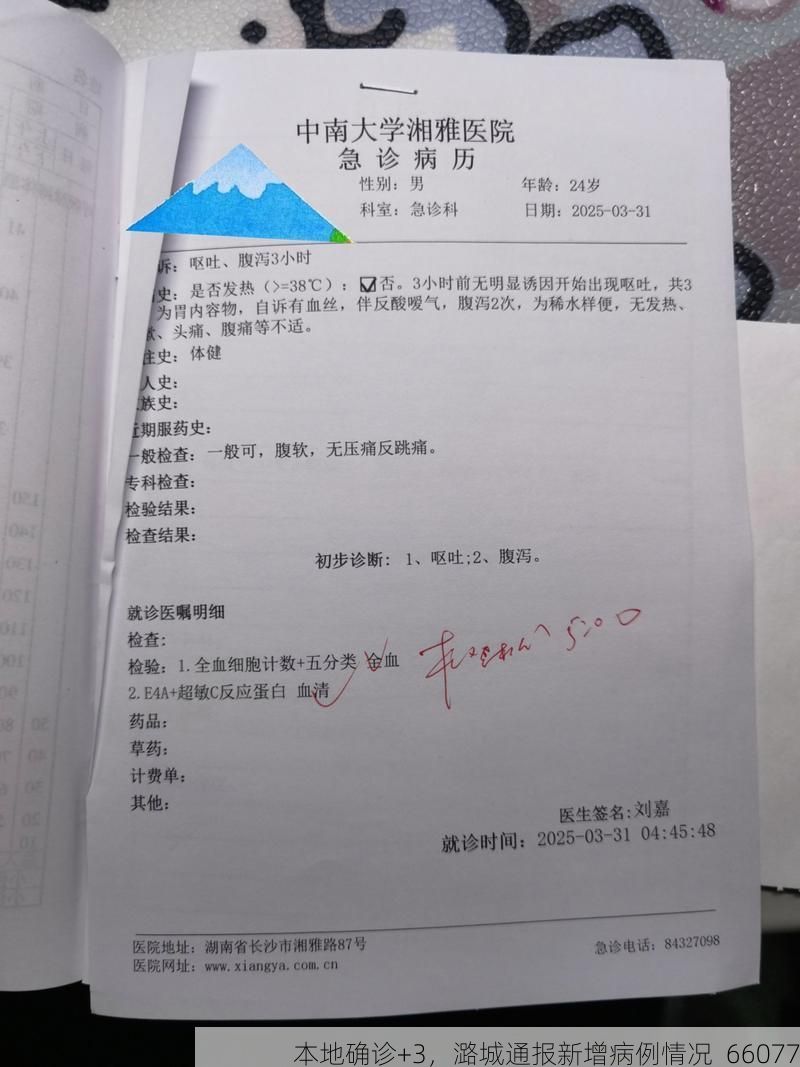 中南大学湘雅医院
急诊病历
性别：男 年龄：24岁
科室：急诊科 日期：2025-03-31
诉：呕吐、腹泻3小时
史：是否发热（>=38℃）：☑否。3小时前无明显诱因开始出现呕吐，共3
为胃内容物，自诉有血丝，伴反酸嗳气，腹泻2次，为稀水样便，无发热、
、头痛、腹痛等不适。
往史：体健
人史：
族史：
近期服药史：
一般检查：一般可，腹软，无压痛反跳痛。
专科检查：
检验结果：
检查结果：
初步诊断：1、呕吐;2、腹泻。
就诊医嘱明细
检查：
检验：1.全血细胞计数+五分类 全血
2.E4A+超敏C反应蛋白 血清
药品：
草药：
计费单：
其他：
医生签名:刘嘉
就诊时间：2025-03-31 04:45:48
医院地址：湖南省长沙市湘雅路87号 急诊电话：84327098
医院网址：www.xiangya.com.cn
本地确诊+3，潞城通报新增病例情况 66077